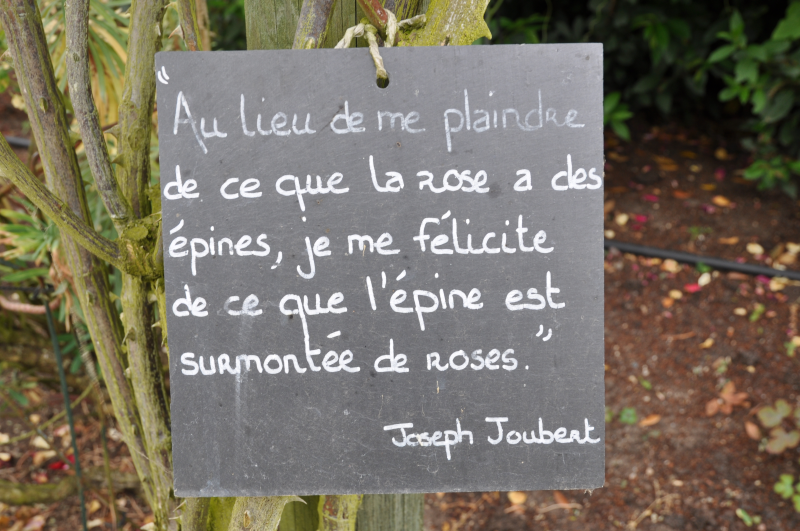 "Au lieu de me plaindre
de ce que la rose a des
épines, je me félicite
de ce que l'épine est
surmontée de roses."
Joseph Joubert